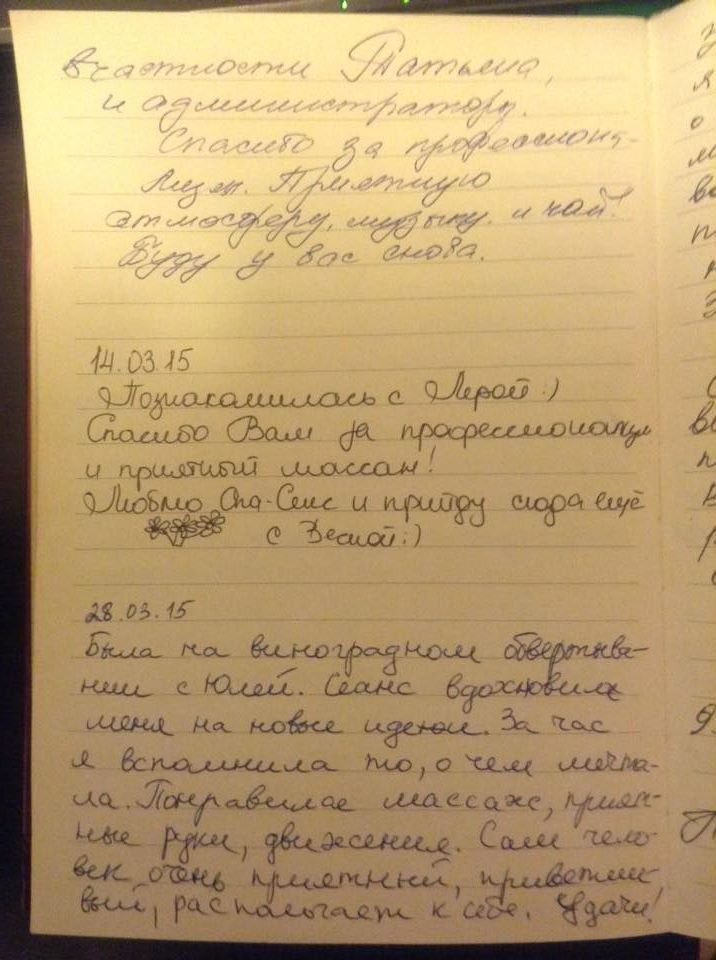 в частности Татьяна,
и администратору.
Спасибо за профессиона-
лизм. Приятную
атмосферу, музыку и чай!
Буду у вас снова.
14.03.15
Познакомилась с Лерой :)
Спасибо Вам за профессионализм
и приятный массаж!
Люблю Спа-Сенс и прийду сюда ещё
с Весной :)
28.03.15
Была на виноградном обвертыва-
нии с Юлей. Сеанс вдохновил
меня на новые идеи. За час
я вспомнила то, о чем мечта-
ла. Понравился массаж, прият-
ные руки, движения. Сам чело-
век очень приятный, приветли-
вый, располагает к себе. Удачи!